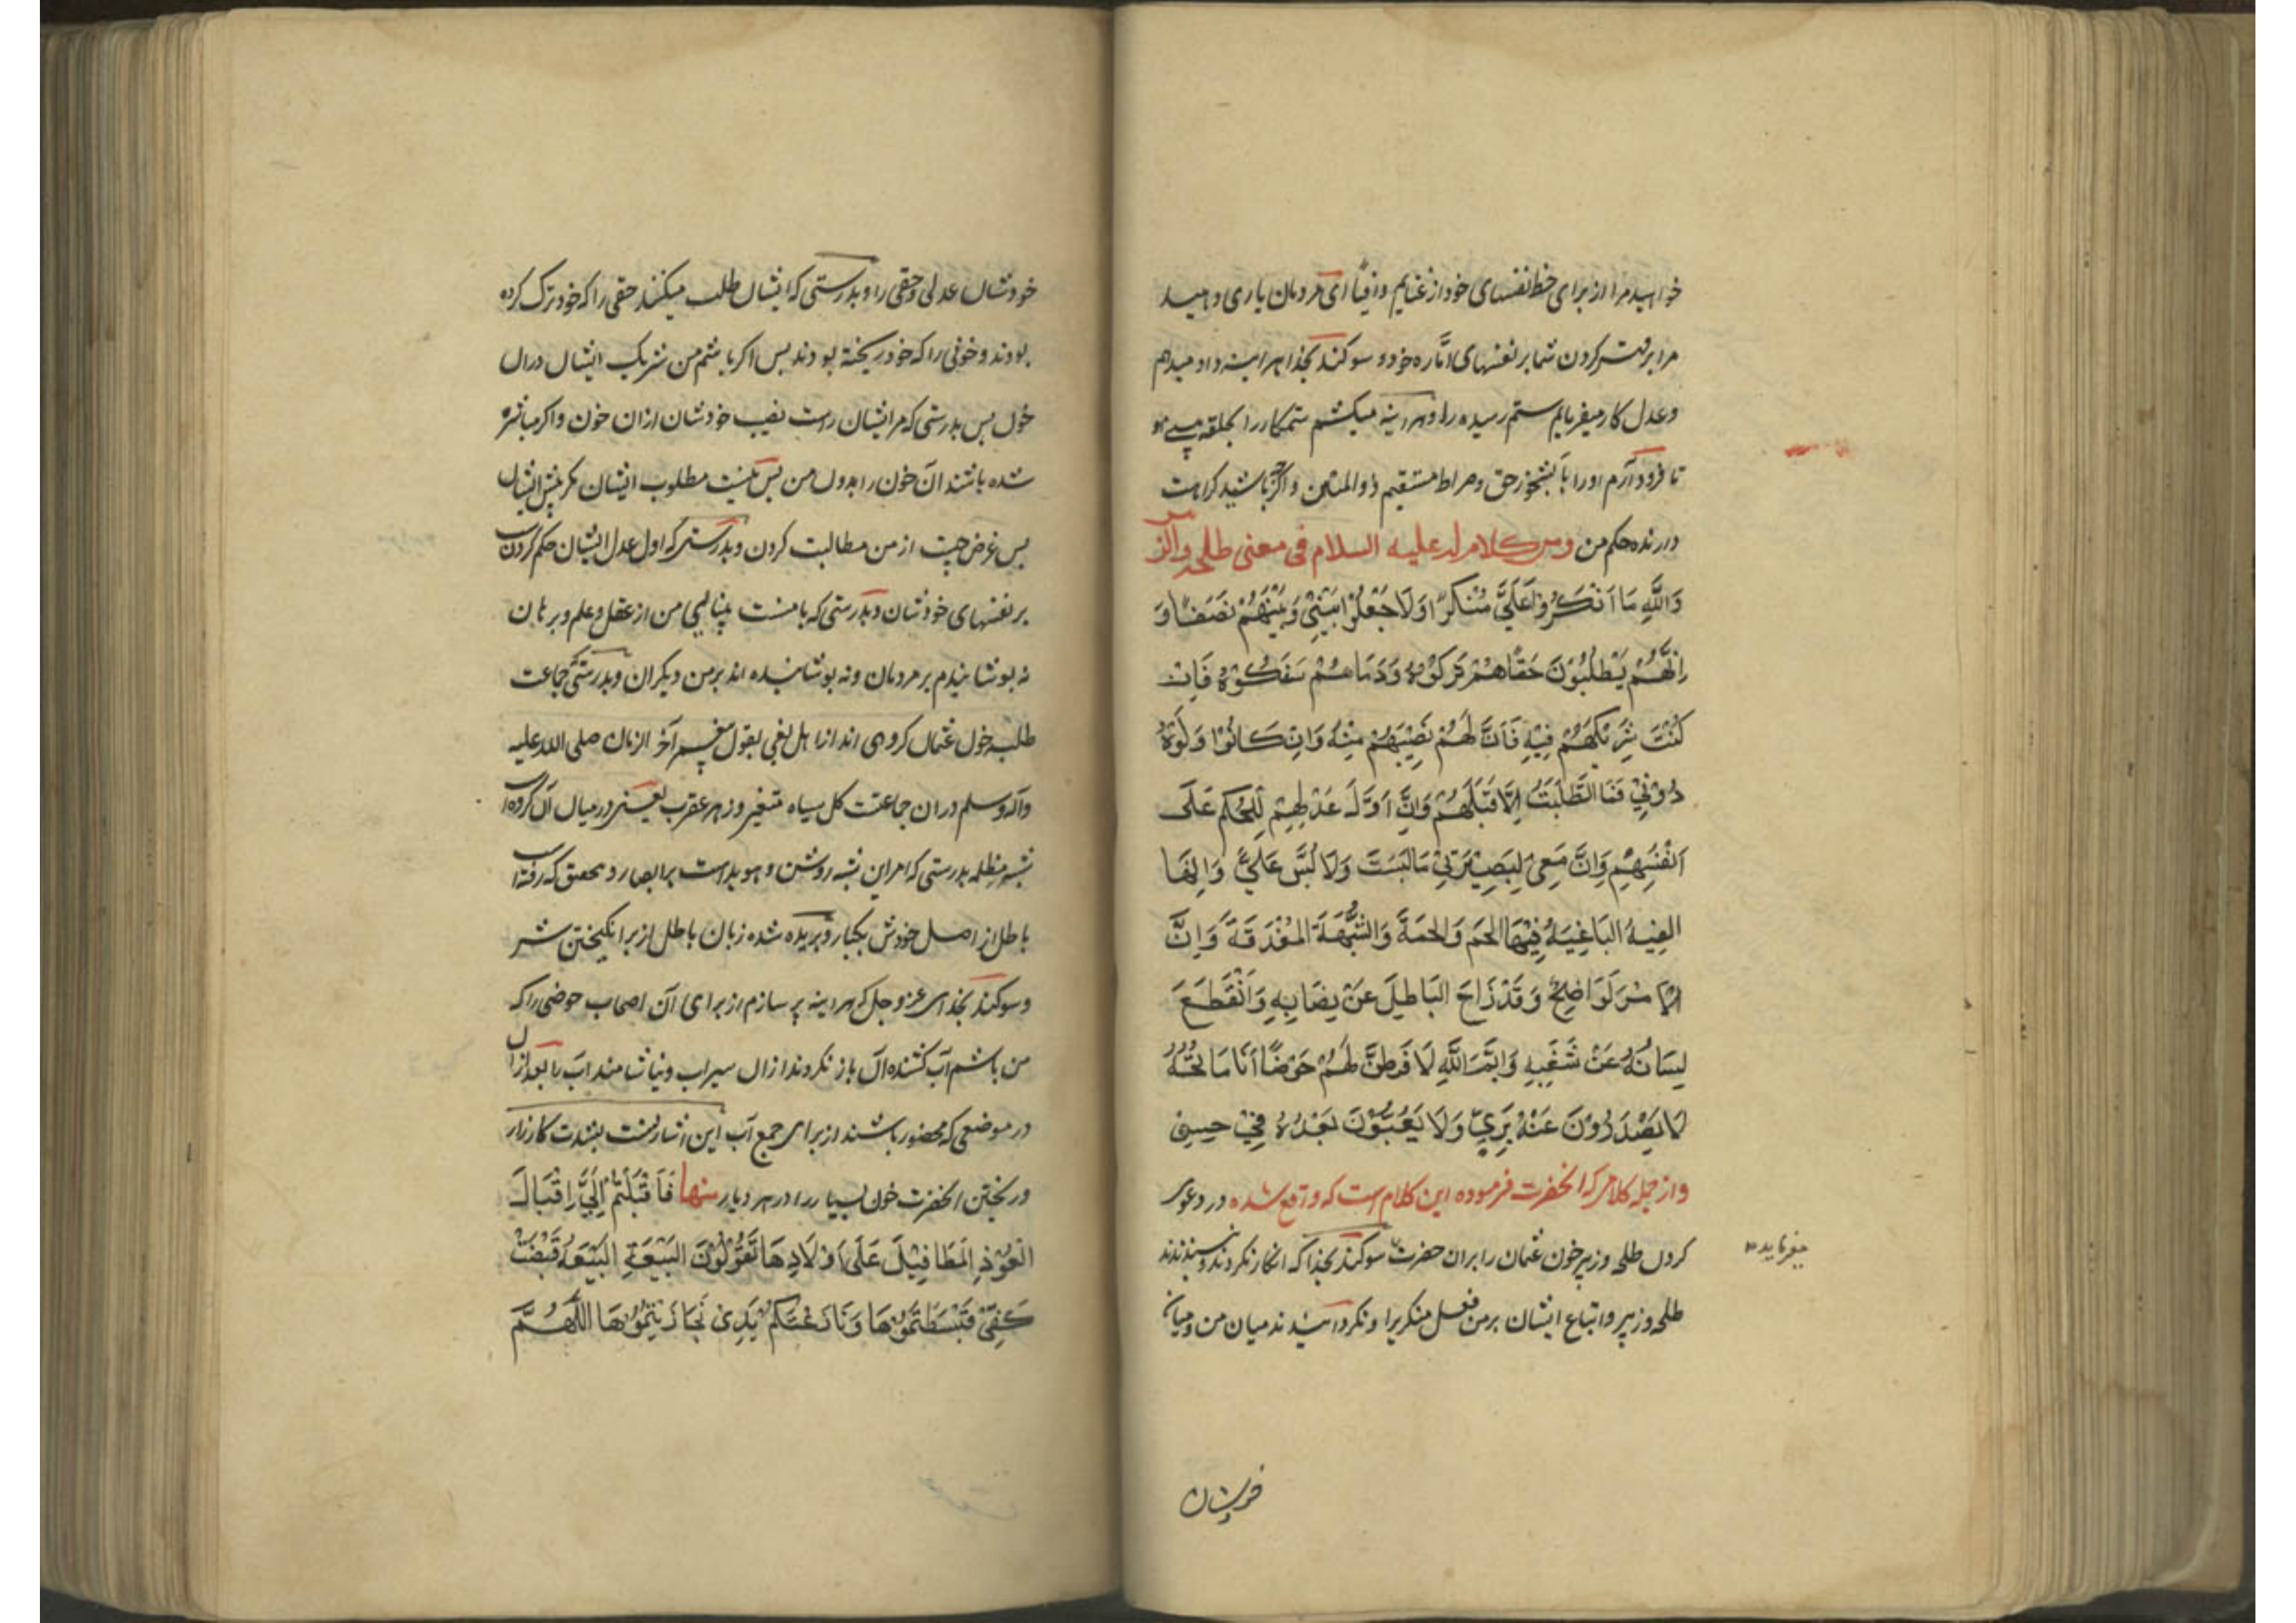 خواهید مرا از برای حظ نفسهای خود از غنایم و افیٔا ای مردمان یاری دهید
مرا بر قهر کردن شما بر نفسهای امّاره خود و سوکند بخدا هر اینه داد میدهم
وعدل کار میفرمایم ستم رسیده را و هر اینه میکشم ستمکار را بحلقه بینی او
تا فرود آرم او را بآبشخور حق و صراط مستقیم ذوالمتین و اگرچه باشید کراهت
دارنده حکم من ومن کلام له علیه السلام فی معنی طلحه والزبیر
وَاللَّهِ مَا اَنْكَرُوْا عَلَيَّ مُنْكَرًا وَلَا جَعَلُوْا بَيْنِيْ وَبَيْنَهُمْ نَصَفًا وَ
اِنَّهُمْ يَطْلُبُوْنَ حَقًّا هُمْ تَرَكُوْهُ وَدَمًا هُمْ سَفَكُوْهُ فَاِنْ
كُنْتُ شَرِيْكَهُمْ فِيْهِ فَاَنَّ لَهُمْ نَصِيْبَهُمْ مِنْهُ وَاِنْ كَانُوْا وَلُوْهُ
دُوْنِيْ فَمَا الطَّلِبَةُ اِلَّا قِبَلَهُمْ وَاِنَّ اَوَّلَ عَدْلِهِمْ لِلْحُكْمِ عَلَى
اَنْفُسِهِمْ وَاِنَّ مَعِيْ لَبَصِيْرَتِيْ مَا لَبَسْتُ وَلَا لُبِّسَ عَلَيَّ وَاِنَّهَا
الفِيَهُ البَاغِيَهُ فِيْهَا الحَمَ وَالحُمَةَ وَالشُّبْهَةَ المُغْدَقَةَ وَاِنَّ
الْاَمْرَ لَوَاضِحٌ وَقَدْ زَاحَ البَاطِلَ عَنْ نِصَابِهِ وَانْقَطَعَ
لِسَانُهُ عَنْ شَغَبِهِ وَايْمُ اللَّهِ لَاَفْرِطَنَّ لَهُمْ حَوْضًا اَنَا مَاتِحُهُ
لَا يَصْدُرُوْنَ عَنْهُ بِرِيٍّ وَلَا يَعُبُّوْنَ بَعْدَهُ فِيْ حِسِيٍ
و از جمله کلام که انحضرت فرموده این کلام است که واقع شده در دعوی
کردن طلحه و زبیر خون عثمان را بران حضرت سوکند بخدا که انکار نکردند و نسپندیدند
میفرماید
طلحه و زبیر و اتباع ایشان بر من فعل منکر یرا و نکردانیدند میان من و میان
خودشان
خودشان عدلی و حقی را و بدرستی که ایشان طلب میکنند حقی را که خود ترک کرده
بودند و خونی را که خود ریخته بودند پس اگر باشم من شریک ایشان دران
خون پس بدرستی که مر ایشان راست نصیب خودشان ازان خون و اکر مباشر
شده باشند آن خون را بدون من پس نیست مطلوب ایشان مکر پیش ایشان
پس غرض چیست از من مطالبت کردن و بدرستی که اول عدل ایشان حکم کردنست
بر نفسهای خودشان و بدرستی که با منست بینایی من از عقل و علم و برهان
نه پوشانیدم بر مردمان و نه پوشانیده اند بر من دیکران و بدرستی جماعت
طلبه خون عثمان کروهی اند از اهل بغی بقول پیغمبر آخر الزمان صلی الله علیه
وآله وسلم دران جماعتست کل سیاه متغیر و زهر عقرب یعنی در میان آن کروه
شبه مظلمه بدرستی که امر این شبه روشن و هویداست بر ابصار و بتحقیق که رفته
باطل از اصل خودش بکبار و بریده شده زبان باطل از برانکیختن شر
و سوکند بخدای عز و جل که هر اینه پر سازم از برای آن اصحاب حوضی را که
من باشم آب کشنده آن باز نکردند ازان سیراب و نیاشامند آب را بعد ازان
در موضعی که محضور باشند از برای جمع آب این اشارتست بشدت کارزار
و ریختن انحضرت خون بسیار را در هر دیار منها فَاَقْبَلْتُمْ اِلَيَّ اِقْبَالَ
العُوْذِ المَطَافِيْلَ عَلَى اَوْلَادِهَا تَقُوْلُوْنَ البَيْعَةِ البَيْعَهُ قَبَضْتُ
كَفِّيْ فَبَسَطْتُمُوْهَا وَنَازَعْتُكُمْ يَدِيْ فَجَاذَبْتُمُوْهَا اللَّهُمَّ